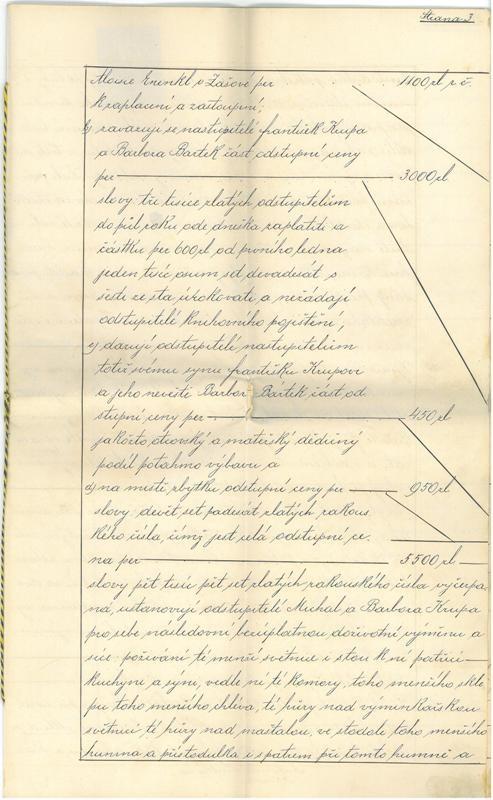 Strana 3.
Aloise Enenkl v Zašové per 1100 zl r. č.
k zaplacení a zastoupní;
b) zavazují se nastupitelé František Krupa
a Barbora Bartek část odstupní ceny
per 3000 zl
slovy: tři tisíce zlatých odstupitelům
do půl roku ode dneška zaplatiti a
částku per 600 zl od prvního ledna
jeden tisíc osum set devadesát s
šesti ze sta zúrokovati, a nežádají
odstupitelé knihovního pojištění;
c) darují odstupitelé nastupitelům
totiž svému synu Františku Krupovi
a jeho nevěstě Barboře Bartek část od
stupní ceny per 450 zl
jakožto otcovský a mateřský dědičný
podíl potahmo výbavu a
d) na místě zbytku odstupní ceny per 950 zl
slovy: devět set padesát zlatých rakous
kého čísla, čímž jest celá odstupní ce-
na per 5500 zl
slovy pět tisíc pět set zlatých rakouského čísla vyčerpa-
ná, ustanovují odstupitelé Michal a Barbora Krupa
pro sebe následovní bezúplatnou doživotní výminu a
sice: požívání té menší světnice i s tou k ní patřící
kuchyní a syní, vedle ní té komory, toho menšího skle
pu toho menšího chléva, té hůry nad výminkářskou
světnicí té hůry nad maštalou, ve stodole toho menšího
humna a přístodulka i s patrem při tomto humně a